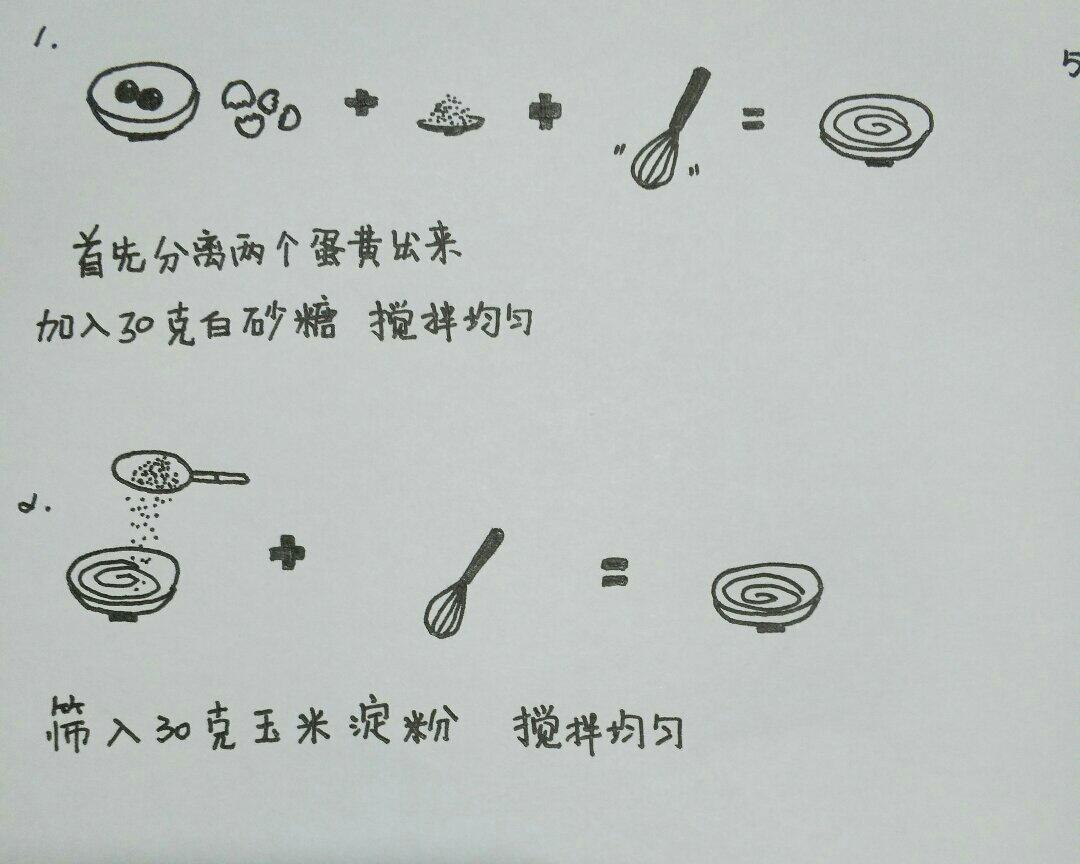 1.
首先分离两个蛋黄出来
加入30克白砂糖 搅拌均匀
2.
筛入30克玉米淀粉 搅拌均匀
5